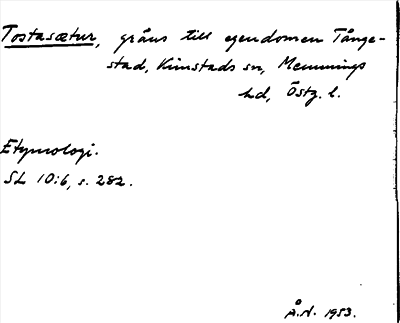 Tostasætur, gräns till egendomen Tånge-
stad, Kimstads sn, Memmings
hd, Östg. l.
Etymologi.
SL 10:6, s. 282.
Å.N. 1953.